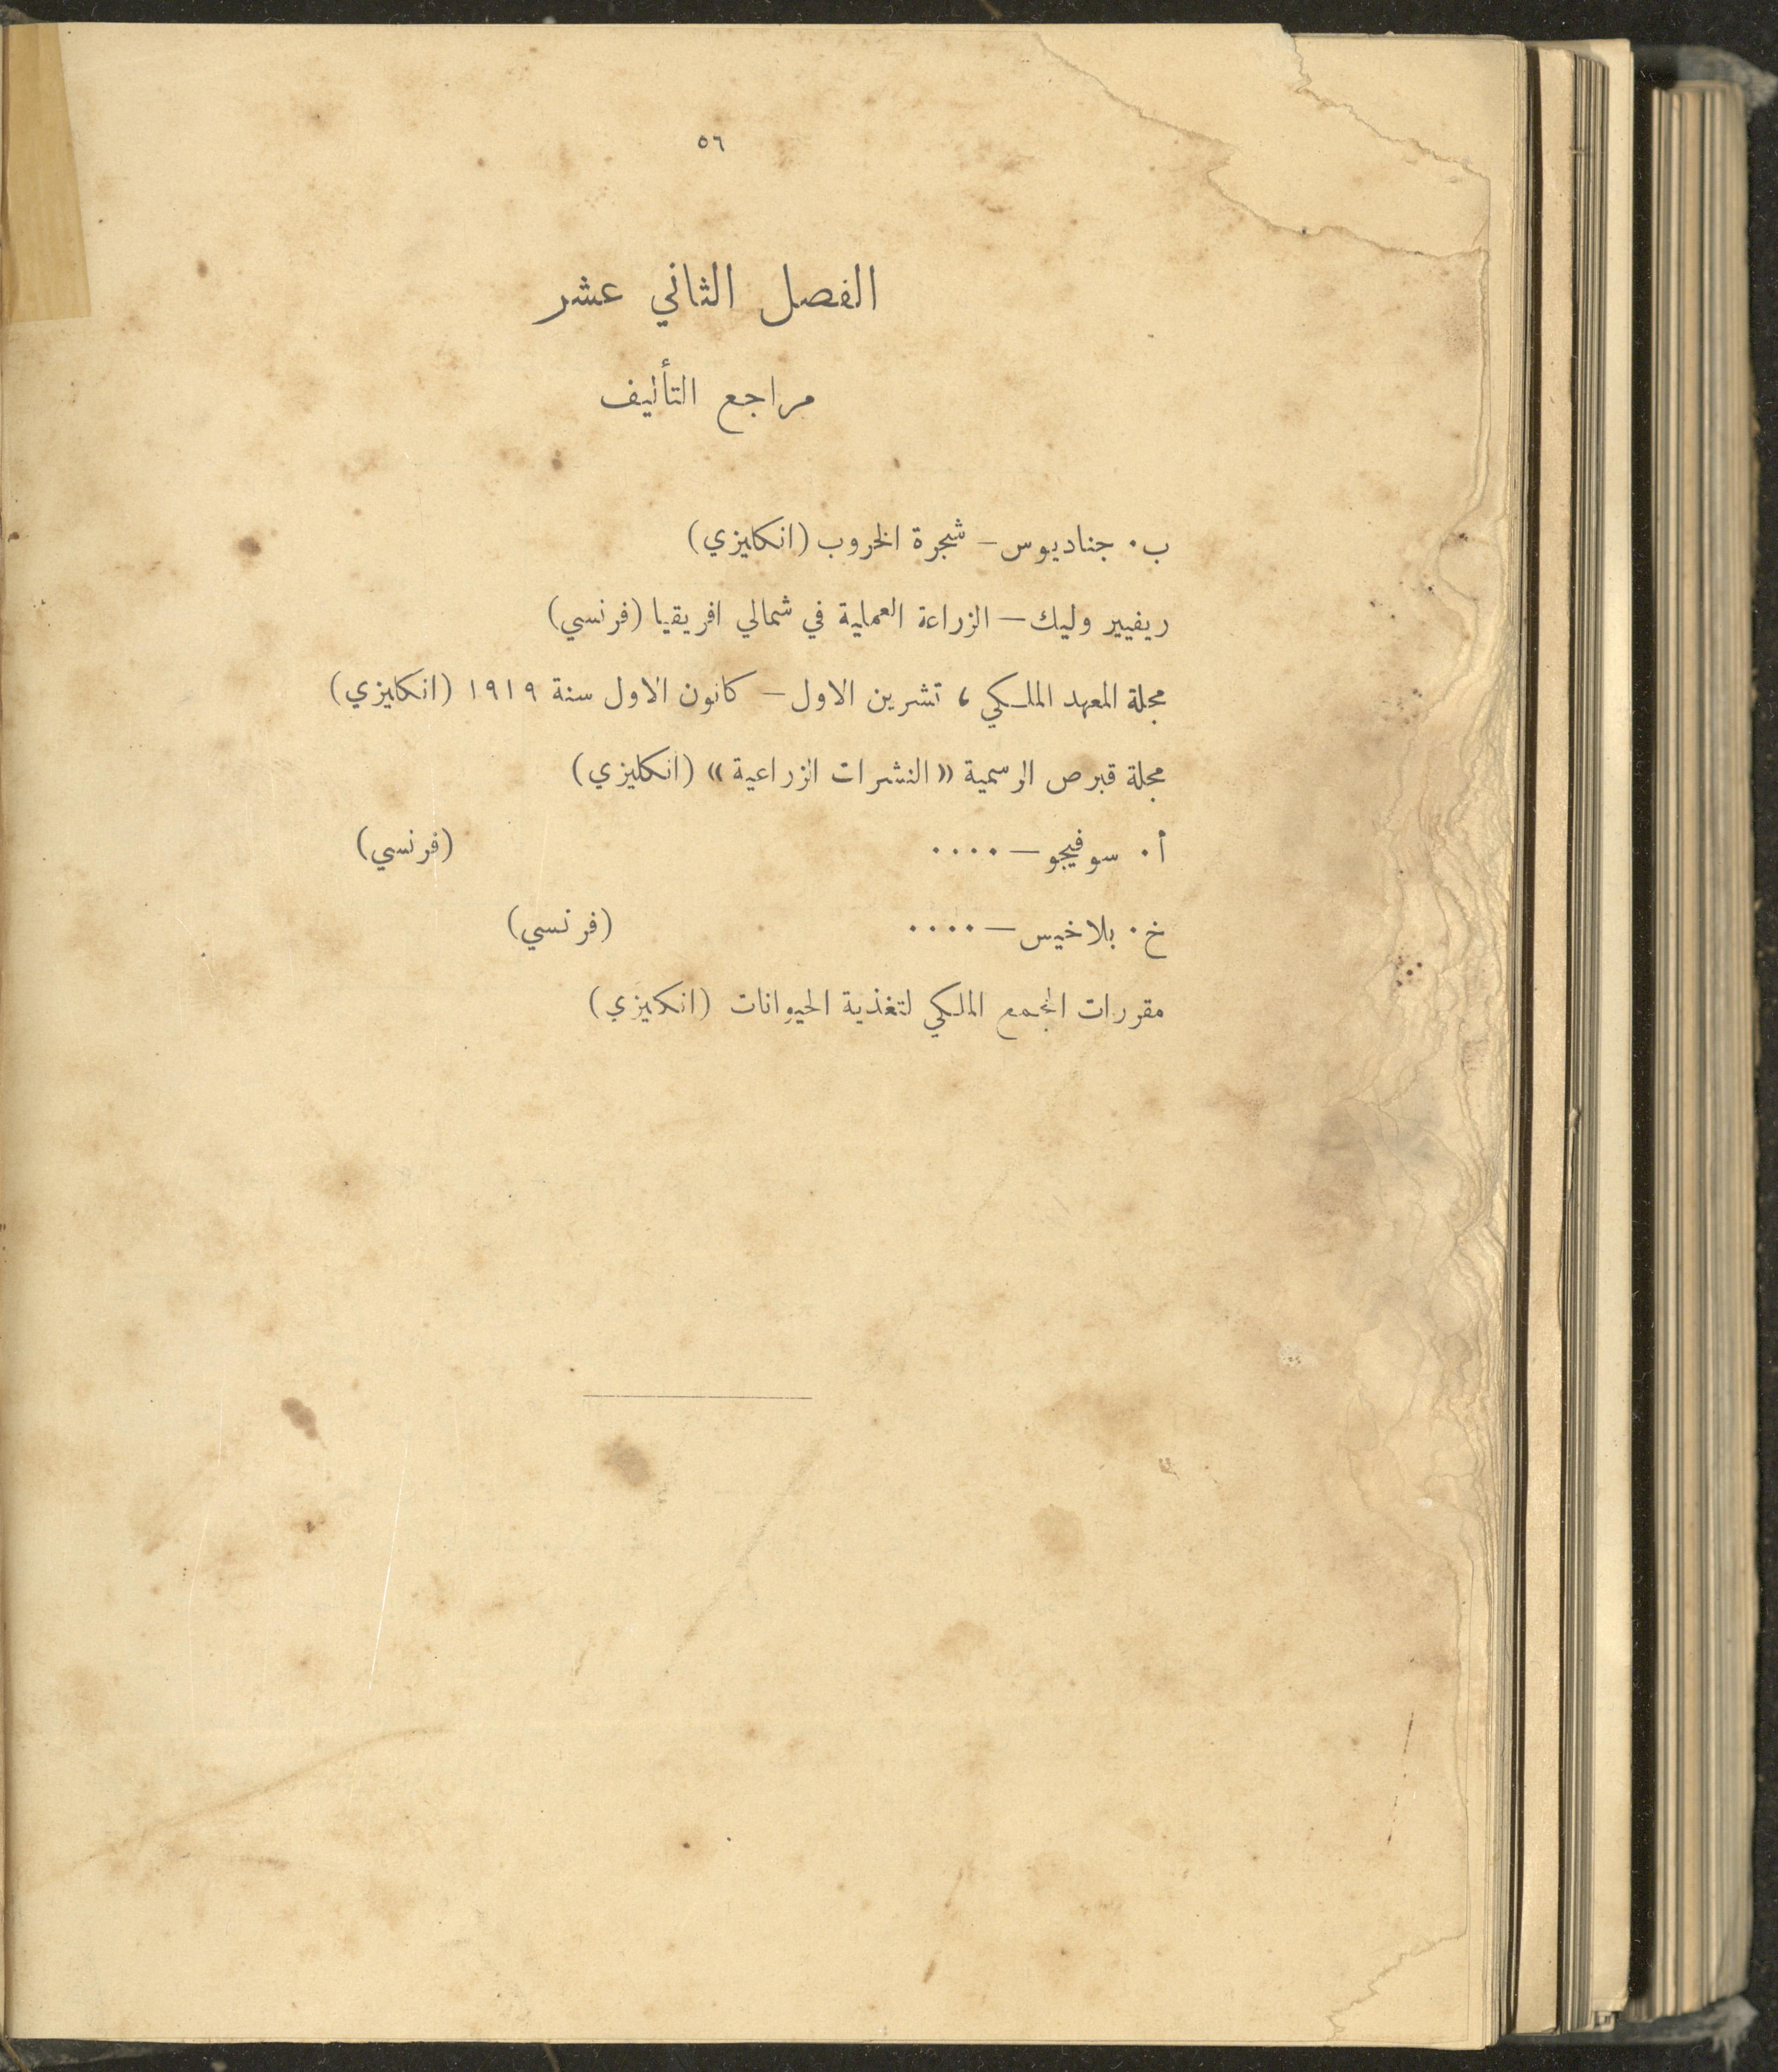 ٥٦
الفصل الثاني عشر
مراجع التأليف
ب٠ جناديوس — شجرة الخروب (انكليزي)
ريفيير وليك — الزراعة العملية في شمالي افريقيا (فرنسي)
مجلة المعهد الملكي ، تشرين الاول — كانون الاول سنة ١٩١٩ (انكليزي)
مجلة قبرص الرسمية «النشرات الزراعية» (انكليزي)
أ٠ سوفيجو — ٠٠٠٠ (فرنسي)
خ٠ بلاخيس — ٠٠٠٠ (فرنسي)
مقررات المجمع الملكي لتغذية الحيوانات (انكليزي)